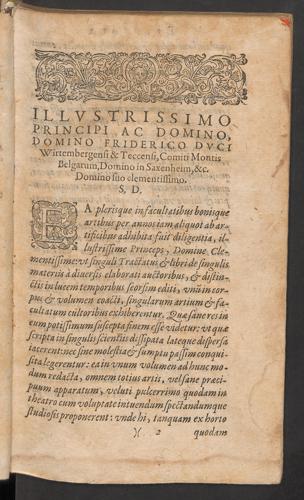 ILLVSTRISSIMO
PRINCIPI AC DOMINO,
DOMINO FRIDERICO DVCI
Wirtembergensi & Teccensi, Comiti Montis
Belgarum, Domino in Saxenheim, &c.
Domino suo clementissimo.
S. D.
EA plerisque in facultatibus bonisque
artibus per annos iam aliquot ab ar-
tificibus adhibita fuit diligentia, il-
lustrissime Princeps, Domine Cle-
mentissime: vt singuli Tractatus & libri de singulis
materiis à diuersis elaborati auctoribus, & distin-
ctis in lucem temporibus seorsim editi, vnũ in cor-
pus & volumen coacti, singularum artium & fa-
cultatum cultoribus exhiberentur. Quæ sane res in
eum potissimum suscepta finem esse videtur: vt quæ
scripta in singulis scientiis dissipata lateque dispersa
iacerent: nec sine molestia & sumptu passim conqui-
sita legerentur: ea in vnum volumen ad hunc mo-
dum redacta, omnem totius artis, vel sane præci-
puum apparatum, veluti pulcerrimo quodam in
theatro cum voluptate intuendum spectandumque
studiosis proponerent: vnde hi, tanquam ex horto
)( 2 quodam